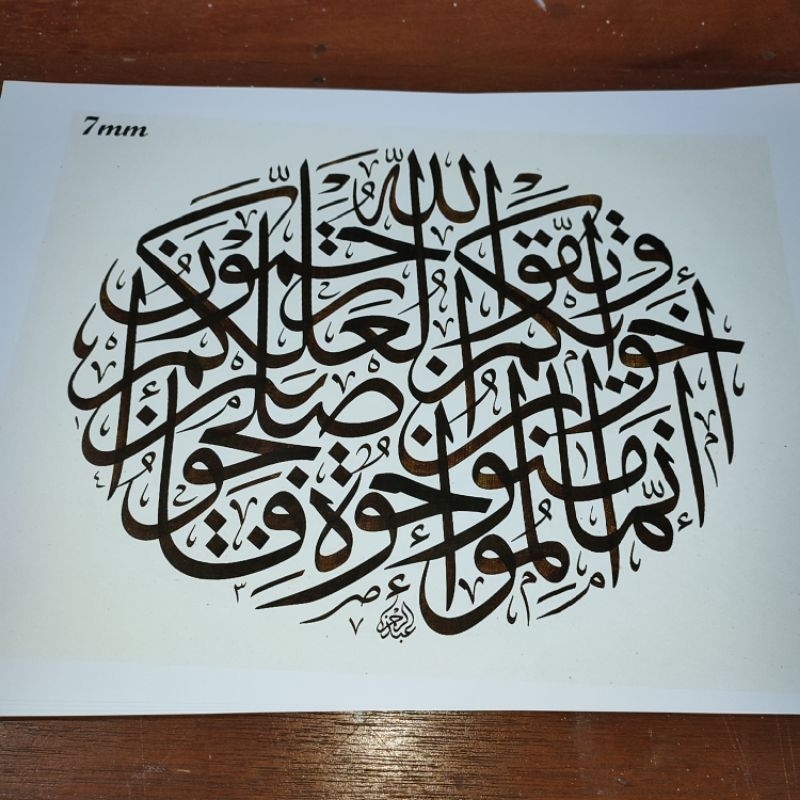 7mm
إنّما المؤمنون إخوة فأصلحوا بين أخويكم واتّقوا الله لعلّكم ترحمون
عبدالرحمن